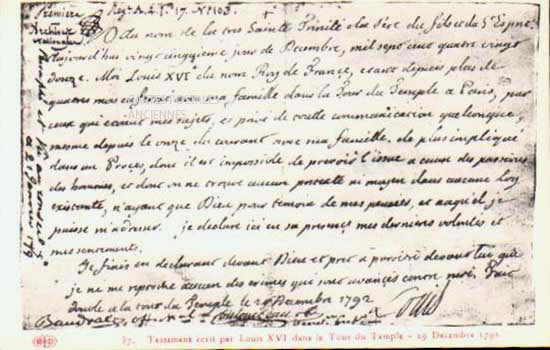 Première
Reg. A. L. 1. 17. No. 103.
Archives
nationales
Au nom de la tres Sainte Trinité du Pere du fils et du St Esprit
aujourd'hui vingt cinquieme jour de Decembre, mil sept cent quatre vingt
douze. Moi Louis XVI.e du nom Roy de France, etant depuis plus de
quatre mois enfermé avec ma famille dans la Tour du Temple a Paris, par
ceux qui etaient mes sujets, et privé de toutte communication quelconque,
mesme depuis le onze du courant avec ma famille, de plus impliqué
dans un Procès, dont il est impossible de prevoir l'issue a cause des passions
des hommes, et dont on ne trouve aucun pretexte ni moyen dans aucune loy
existente, n'ayant que Dieu pour temoin de mes pensees, et auquel je
puisse m'adresser. je declare ici en sa presence mes dernieres volontés et
mes sentiments.
Je finis en declarant devant Dieu et pret a paroitre devant lui que
je ne me reproche aucun des crimes qui sont avancés contre moi. Fait
double a la tour du Temple le 25 Decembre 1792 Louis
Baudrais
ELD
37. Testament écrit par Louis XVI dans la Tour du Temple - 29 Décembre 1792
ANCIENNES